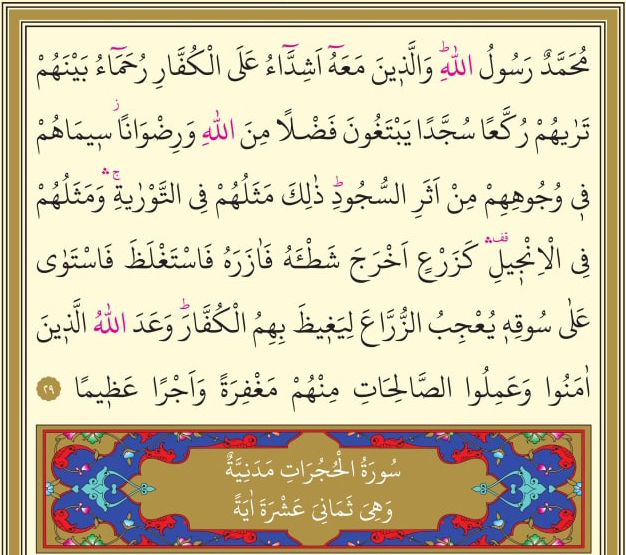 مُحَمَّدٌ رَسُولُ اللّٰهِۜ وَالَّذ۪ينَ مَعَهُٓ اَشِدَّٓاءُ عَلَى الْكُفَّارِ رُحَمَٓاءُ بَيْنَهُمْ
تَرٰيهُمْ رُكَّعًا سُجَّدًا يَبْتَغُونَ فَضْلًا مِنَ اللّٰهِ وَرِضْوَانًاۘ س۪يمَاهُمْ
ف۪ي وُجُوهِهِمْ مِنْ اَثَرِ السُّجُودِۜ ذٰلِكَ مَثَلُهُمْ فِي التَّوْرٰيةِۚۛ وَمَثَلُهُمْ
فِي الْاِنْج۪يلِ۠ۛ كَزَرْعٍ اَخْرَجَ شَطْـَٔهُ فَاٰزَرَهُ فَاسْتَغْلَظَ فَاسْتَوٰى
عَلٰى سُوقِه۪ يُعْجِبُ الزُّرَّاعَ لِيَغ۪يظَ بِهِمُ الْكُفَّارَۜ وَعَدَ اللّٰهُ الَّذ۪ينَ
اٰمَنُوا وَعَمِلُوا الصَّالِحَاتِ مِنْهُمْ مَغْفِرَةً وَاَجْرًا عَظ۪يمًا ٢٩
سُورَةُ الْحُجُرَاتِ مَدَنِيَّةٌ
وَهِيَ ثَمَانِيَ عَشْرَةَ اٰيَةً